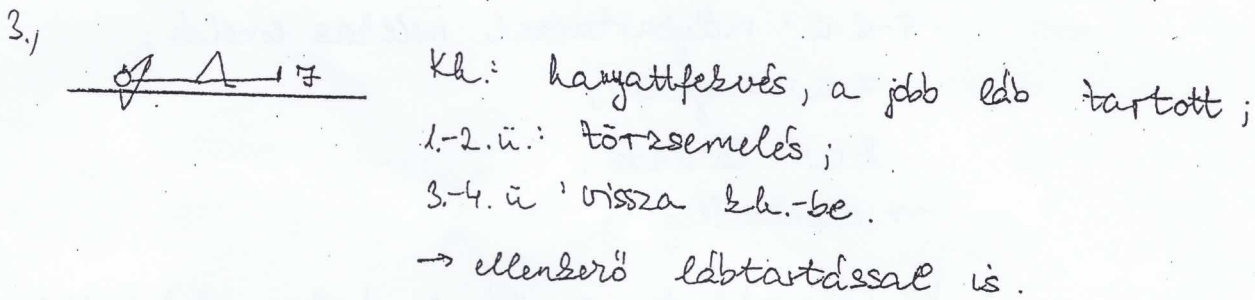 3.,
7
Kh.: hanyattfekvés, a jobb láb tartott;
1-2.ü.: törzsemelés;
3.-4. ü ' vissza kh.-be.
→ ellenkező lábtartással is.